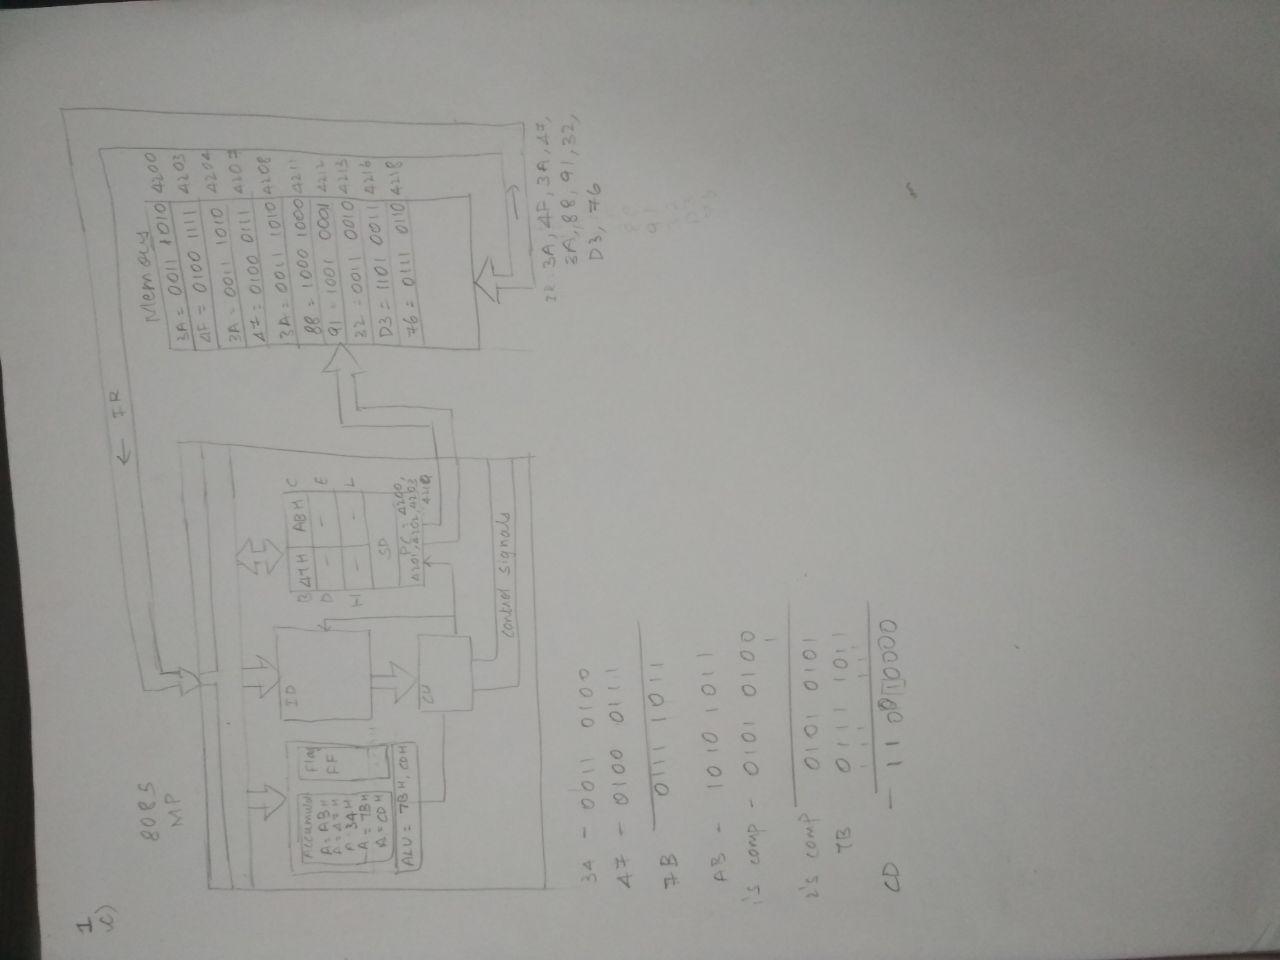 1
c)
8085
MP
← IR
Accumulator
A = ABH
A = 47H
A = 34H
A = 7BH
A = CDH
Flag
FF
ALU = 7BH, CDH
ID
CU
B 47H ABH C
D - - E
H - - L
SP
PC = 4200,
4201, 4202, 4203
control signals
Memory
3A = 0011 1010 4200
4F = 0100 1111 4203
3A = 0011 1010 4204
47 = 0100 0111 4207
3A = 0011 1010 4208
88 = 1000 1000 4211
91 = 1001 0001 4212
32 = 0011 0010 4213
D3 = 1101 0011 4216
76 = 0111 0110 4218
IR: 3A, 4F, 3A, 47,
3A, 88, 91, 32,
D3, 76
34 - 0011 0100
47 - 0100 0111
7B 0111 1011
AB - 1010 1011
1's comp - 0101 0100
1
2's comp 0101 0101
7B 0111 1011
CD -